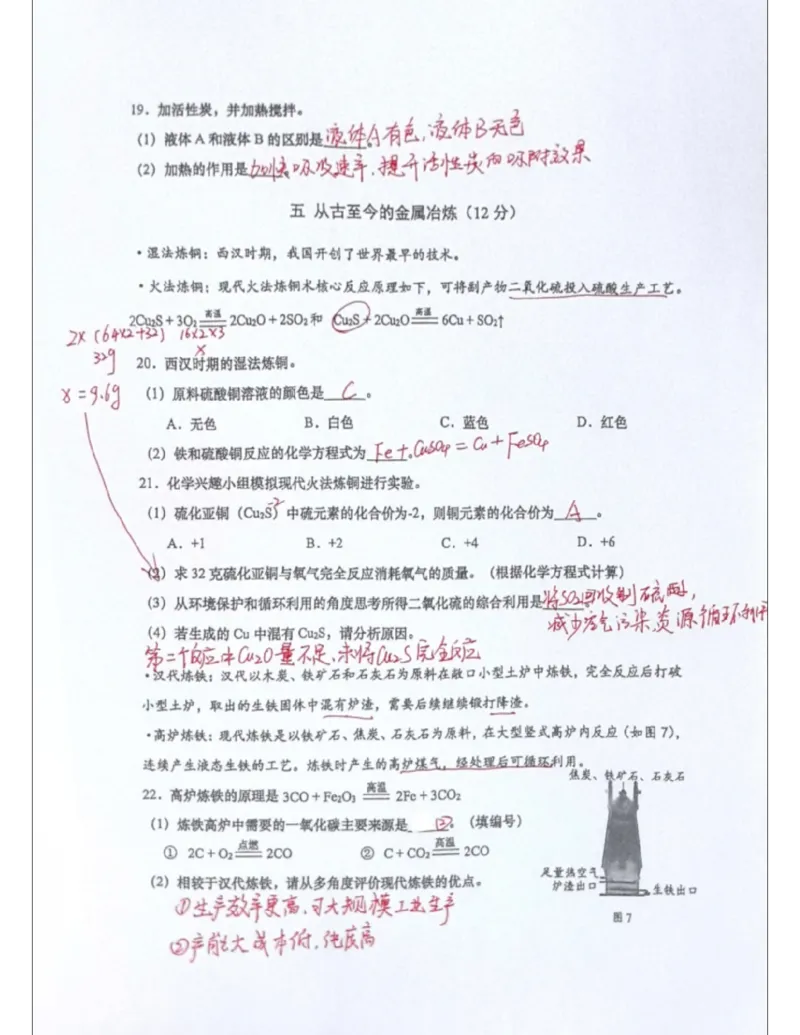 19. 加活性炭，并加热搅拌。
(1) 液体A和液体B的区别是液体A有色，液体B无色
(2) 加热的作用是加速吸收速率，提升活性炭的吸附效果
五 从古至今的金属冶炼（12分）
·湿法炼铜：西汉时期，我国开创了世界最早的技术。
·火法炼铜：现代火法炼铜术核心反应原理如下，可将副产物二氧化硫投入硫酸生产工艺。
2Cu₂S+3O₂ 高温 2Cu₂O+2SO₂ 和 Cu₂S+2Cu₂O 高温 6Cu+SO₂↑
2×(64×2+32) 16×2×3
32g x
x=9.6g
20. 西汉时期的湿法炼铜。
(1) 原料硫酸铜溶液的颜色是 C 。
A. 无色 B. 白色 C. 蓝色 D. 红色
(2) 铁和硫酸铜反应的化学方程式为 Fe+CuSO₄=Cu+FeSO₄
21. 化学兴趣小组模拟现代火法炼铜进行实验。
(1) 硫化亚铜（Cu₂S）中硫元素的化合价为-2，则铜元素的化合价为 A 。
-2
A. +1 B. +2 C. +4 D. +6
(2) 求32克硫化亚铜与氧气完全反应消耗氧气的质量。（根据化学方程式计算）
(3) 从环境保护和循环利用的角度思考所得二氧化硫的综合利用是将SO₂回收制硫酸，
减少空气污染，资源循环利用
(4) 若生成的Cu中混有Cu₂S，请分析原因。
第二个反应中Cu₂O量不足，未将Cu₂S完全反应
·汉代炼铁：汉代以木炭、铁矿石和石灰石为原料在敞口小型土炉中炼铁，完全反应后打破
小型土炉，取出的生铁固体中混有炉渣，需要后续继续锻打降渣。
·高炉炼铁：现代炼铁是以铁矿石、焦炭、石灰石为原料，在大型竖式高炉内反应（如图7），
连续产生液态生铁的工艺。炼铁时产生的高炉煤气，经处理后可循环利用。
焦炭、铁矿石、石灰石
22. 高炉炼铁的原理是 3CO+Fe₂O₃ 高温 2Fe+3CO₂
(1) 炼铁高炉中需要的一氧化碳主要来源是 ② 。（填编号）
① 2C+O₂ 点燃 2CO ② C+CO₂ 高温 2CO
足量热空气
炉渣出口
生铁出口
(2) 相较于汉代炼铁，请从多角度评价现代炼铁的优点。
①生产效率更高，可大规模工业生产
图7
②产能大成本低，纯度高